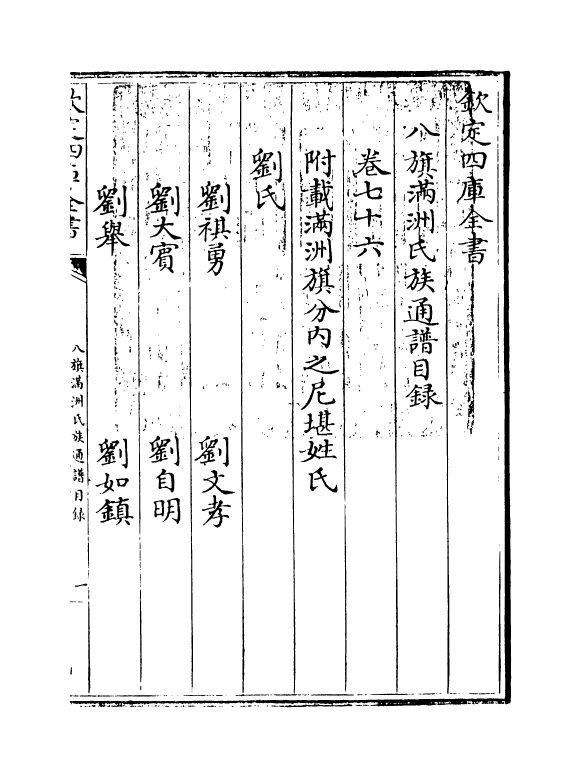 欽定四庫全書
八旗滿洲氏族通譜目録
卷七十六
附載滿洲旗分内之尼堪姓氏
劉氏
劉祺勇 劉文孝
劉大賔 劉自明
劉舉 劉如鎮
欽定四庫全書
八旗滿洲氏族通譜目録
一